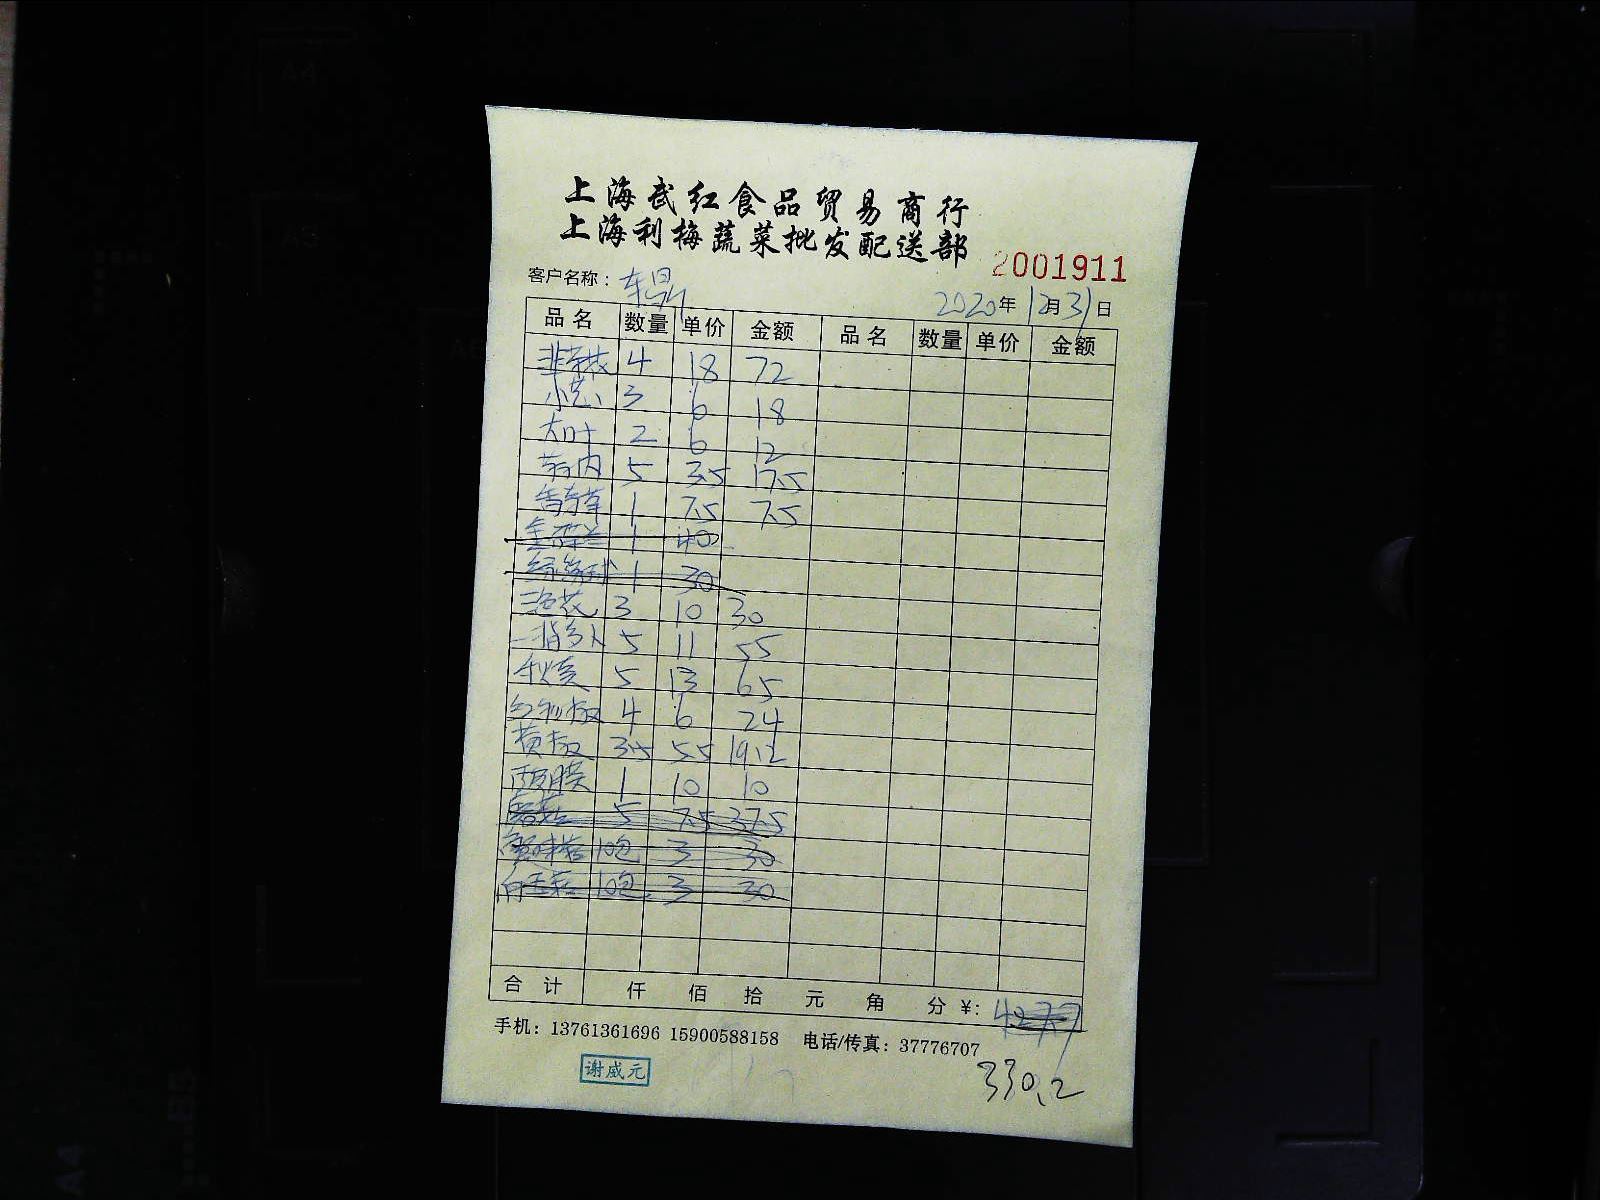 上海武红食品贸易商行
上海利梅蔬菜批发配送部
2001911
客户名称：东鼎
2020年12月31日
品名 数量 单价 金额 品名 数量 单价 金额
4 18 72
小葱 3 6 18
大叶 2 6 12
5 3.5 17.5
香芹草 1 7.5 7.5
1 40
1 30
三色花 3 10 30
5 11 55
秋葵 5 13 65
4 6 24
黄椒 3.5 5.5 19.2
1 10 10
蘑菇 5 7.5 37.5
蟹味菇 10包 3 30
白玉菇 10包 3 30
合计 仟 佰 拾 元 角 分 ¥: 427.7
手机：13761361696 15900588158 电话/传真：37776707
谢威元
330.2